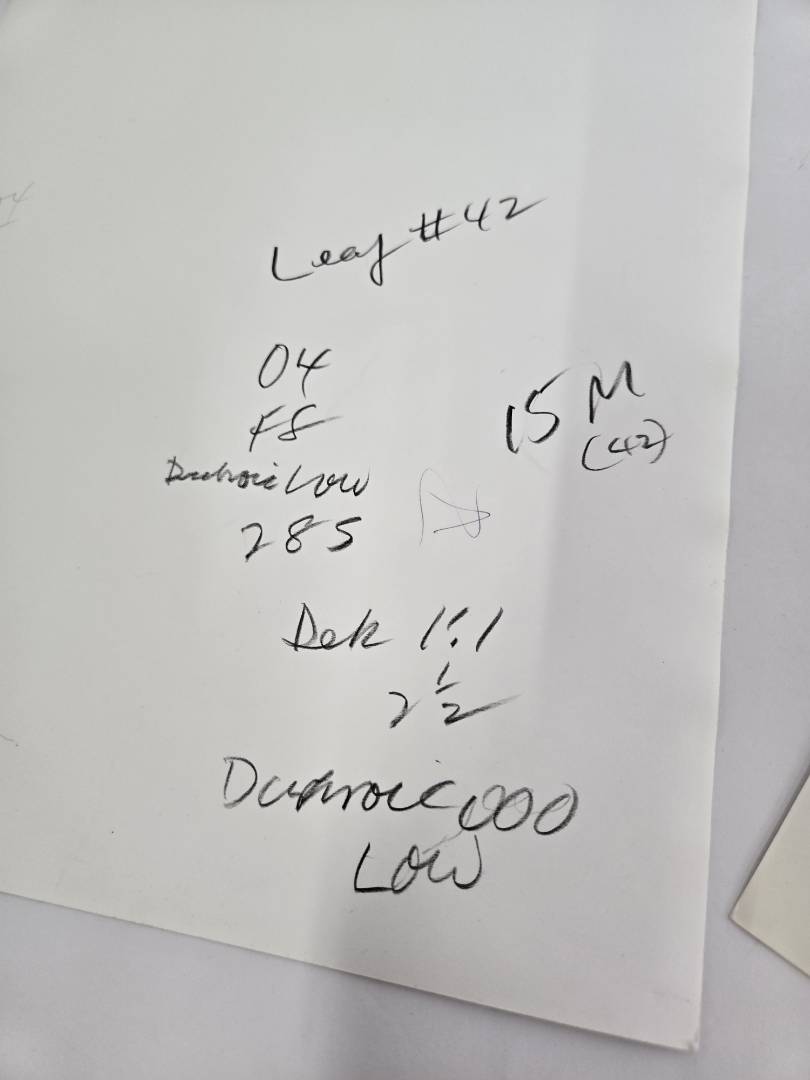 Leaf #42
04
F8
Low
285
15 M
(42)
Dek 1:1
2 1/2
000
Low